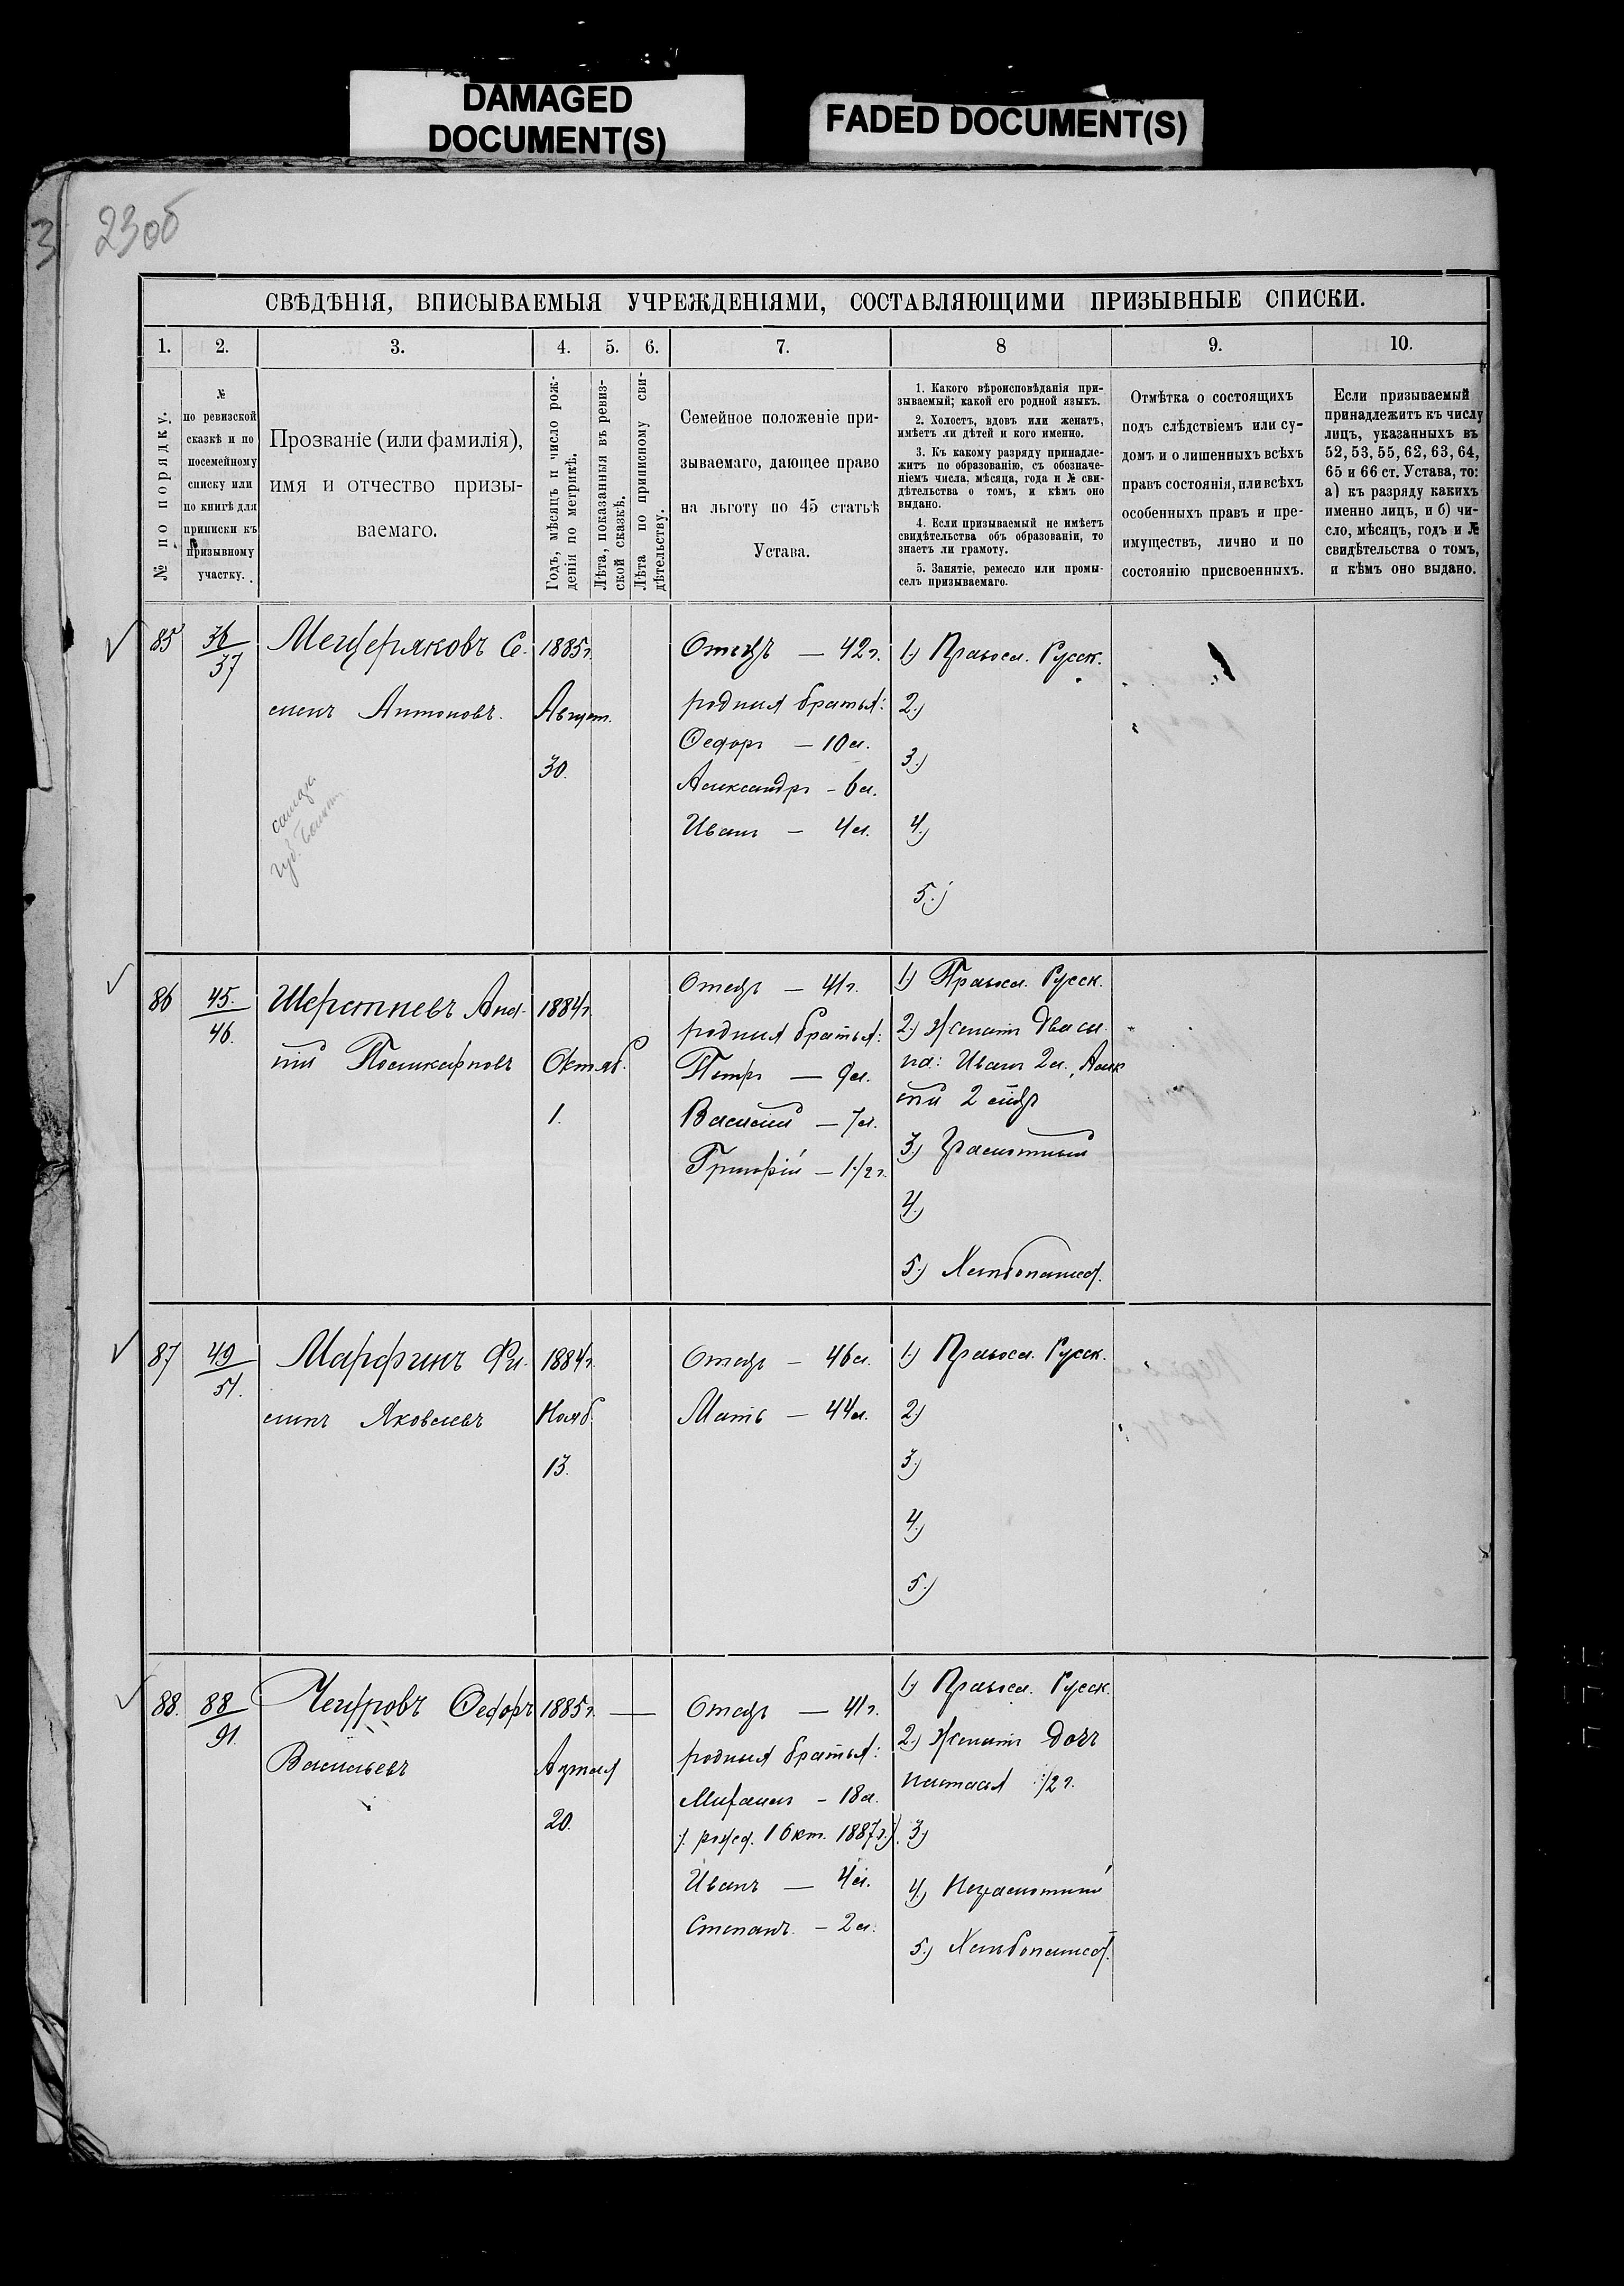 DAMAGED
DOCUMENT(S)
FADED DOCUMENT(S)
3
23об
СВѢДѢНІЯ, ВПИСЫВАЕМЫЯ УЧРЕЖДЕНІЯМИ, СОСТАВЛЯЮЩИМИ ПРИЗЫВНЫЕ СПИСКИ.
1. 2. 3. 4. 5. 6. 7. 8 9. 10.
№ по порядку.
№
по ревизской
сказкѣ и по
посемейному
списку или
по книгѣ для
приписки къ
призывному
участку.
Прозваніе (или фамилія),
имя и отчество призы-
ваемаго.
Годъ, мѣсяцъ и число рож-
денія по метрикѣ.
Лѣта, показанныя въ ревиз-
ской сказкѣ.
Лѣта по приписному сви-
дѣтельству.
Семейное положеніе при-
зываемаго, дающее право
на льготу по 45 статьѣ
Устава.
1. Какого вѣроисповѣданія при-
зываемый; какой его родной языкъ.
2. Холостъ, вдовъ или женатъ,
имѣетъ ли дѣтей и кого именно.
3. Къ какому разряду принадле-
житъ по образованію, съ обозначе-
ніемъ числа, мѣсяца, года и № сви-
дѣтельства о томъ, и кѣмъ оно
выдано.
4. Если призываемый не имѣетъ
свидѣтельства объ образованіи, то
знаетъ ли грамоту.
5. Занятіе, ремесло или промы-
селъ призываемаго.
Отмѣтка о состоящихъ
подъ слѣдствіемъ или су-
домъ и о лишенныхъ всѣхъ
правъ состоянія, или всѣхъ
особенныхъ правъ и пре-
имуществъ, лично и по
состоянію присвоенныхъ.
Если призываемый
принадлежитъ къ числу
лицъ, указанныхъ въ
52, 53, 55, 62, 63, 64,
65 и 66 ст. Устава, то:
а) къ разряду какихъ
именно лицъ, и б) чи-
сло, мѣсяцъ, годъ и №
свидѣтельства о томъ,
и кѣмъ оно выдано.
85
36
37
Мещеряковъ Се-
менъ Антоновъ.
1885г.
Август.
30.
Отецъ — 42 г.
родныя братья:
Ѳедоръ — 10 л.
Александръ - 6 л.
Иванъ — 4 л.
1) Правосл. Русск.
2)
3)
4)
5)
86
45.
46.
Шерстневъ
Поликарповъ
1884г.
Октяб.
1.
Отецъ — 41 г.
родныя братья:
Петръ — 9 л.
Василій — 7 л.
Григорій — 1½ г.
1) Правосл. Русск.
2) Женатъ два сы-
на: Иванъ 2 л.,
3) Грамотный
4)
5) Хлѣбопашец.
87
49
51.
Марфинъ Фи-
липъ Яковлевъ
1884г.
Нояб.
13.
Отецъ — 46 л.
Мать — 44 л.
1) Правосл. Русск.
2)
3)
4)
5)
88.
88
91.
Ѳедоръ
Васильевъ
1885г. —
Апрѣля
20.
Отецъ — 41 г.
родныя братья:
Михаилъ - 18 л.
рожд. 1 Окт. 1887 г.
Иванъ — 4 л.
Степанъ. — 2 л.
1) Правосл. Русск.
2) Женатъ дочь
½ г.
3)
4) Неграмотный
5) Хлѣбопашец.